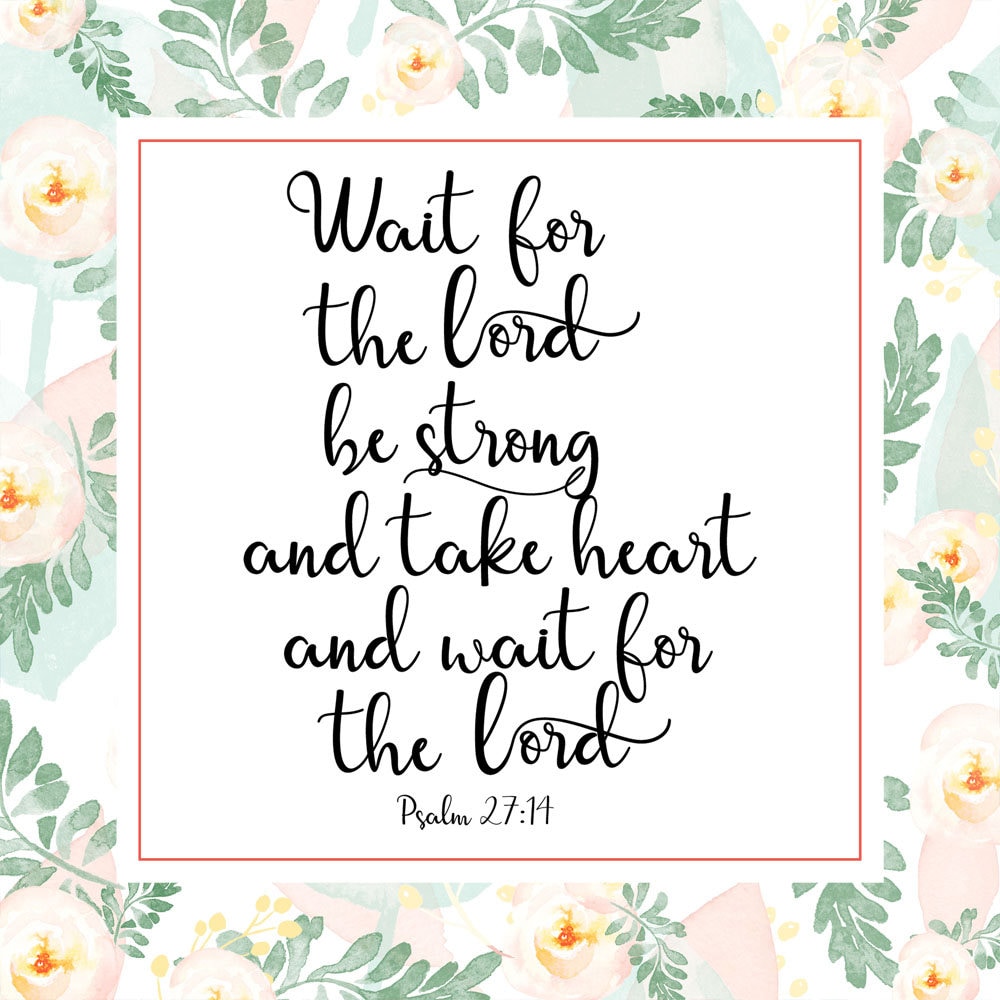 Wait for
the lord
be strong
and take heart
and wait for
the lord
Psalm 27:14